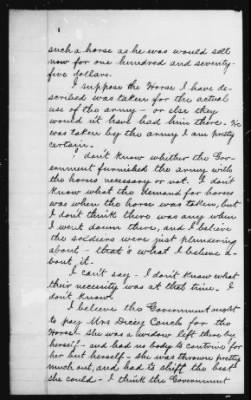 such a horse as he was would sell
now for one hundred and seventy-
five dollars.
I suppose the Horse I have de-
scribed was taken for the actual
use of the army - or else they
would nt have had him there. He
was taken by the army I am pretty
certain.
I don't know whether the Gov-
ernment furnished the army with
the horses necessary or not. I don't
know what the demand for horses
was when the horse was taken, but
I don't think there was any when
I went down there, and I believe
the soldiers were just plundering
about - that's what I believe a-
bout it.
I can't say - I don't know what
their necessity was at that time. I
don't know.
I believe the Government ought
to pay Mrs Dicey Couch for the
Horse - She was a widow left there by
herself - and had no body to contrive for
her but herself - She was thrown pretty
much out, and had to shift the best
she could - I think the Government